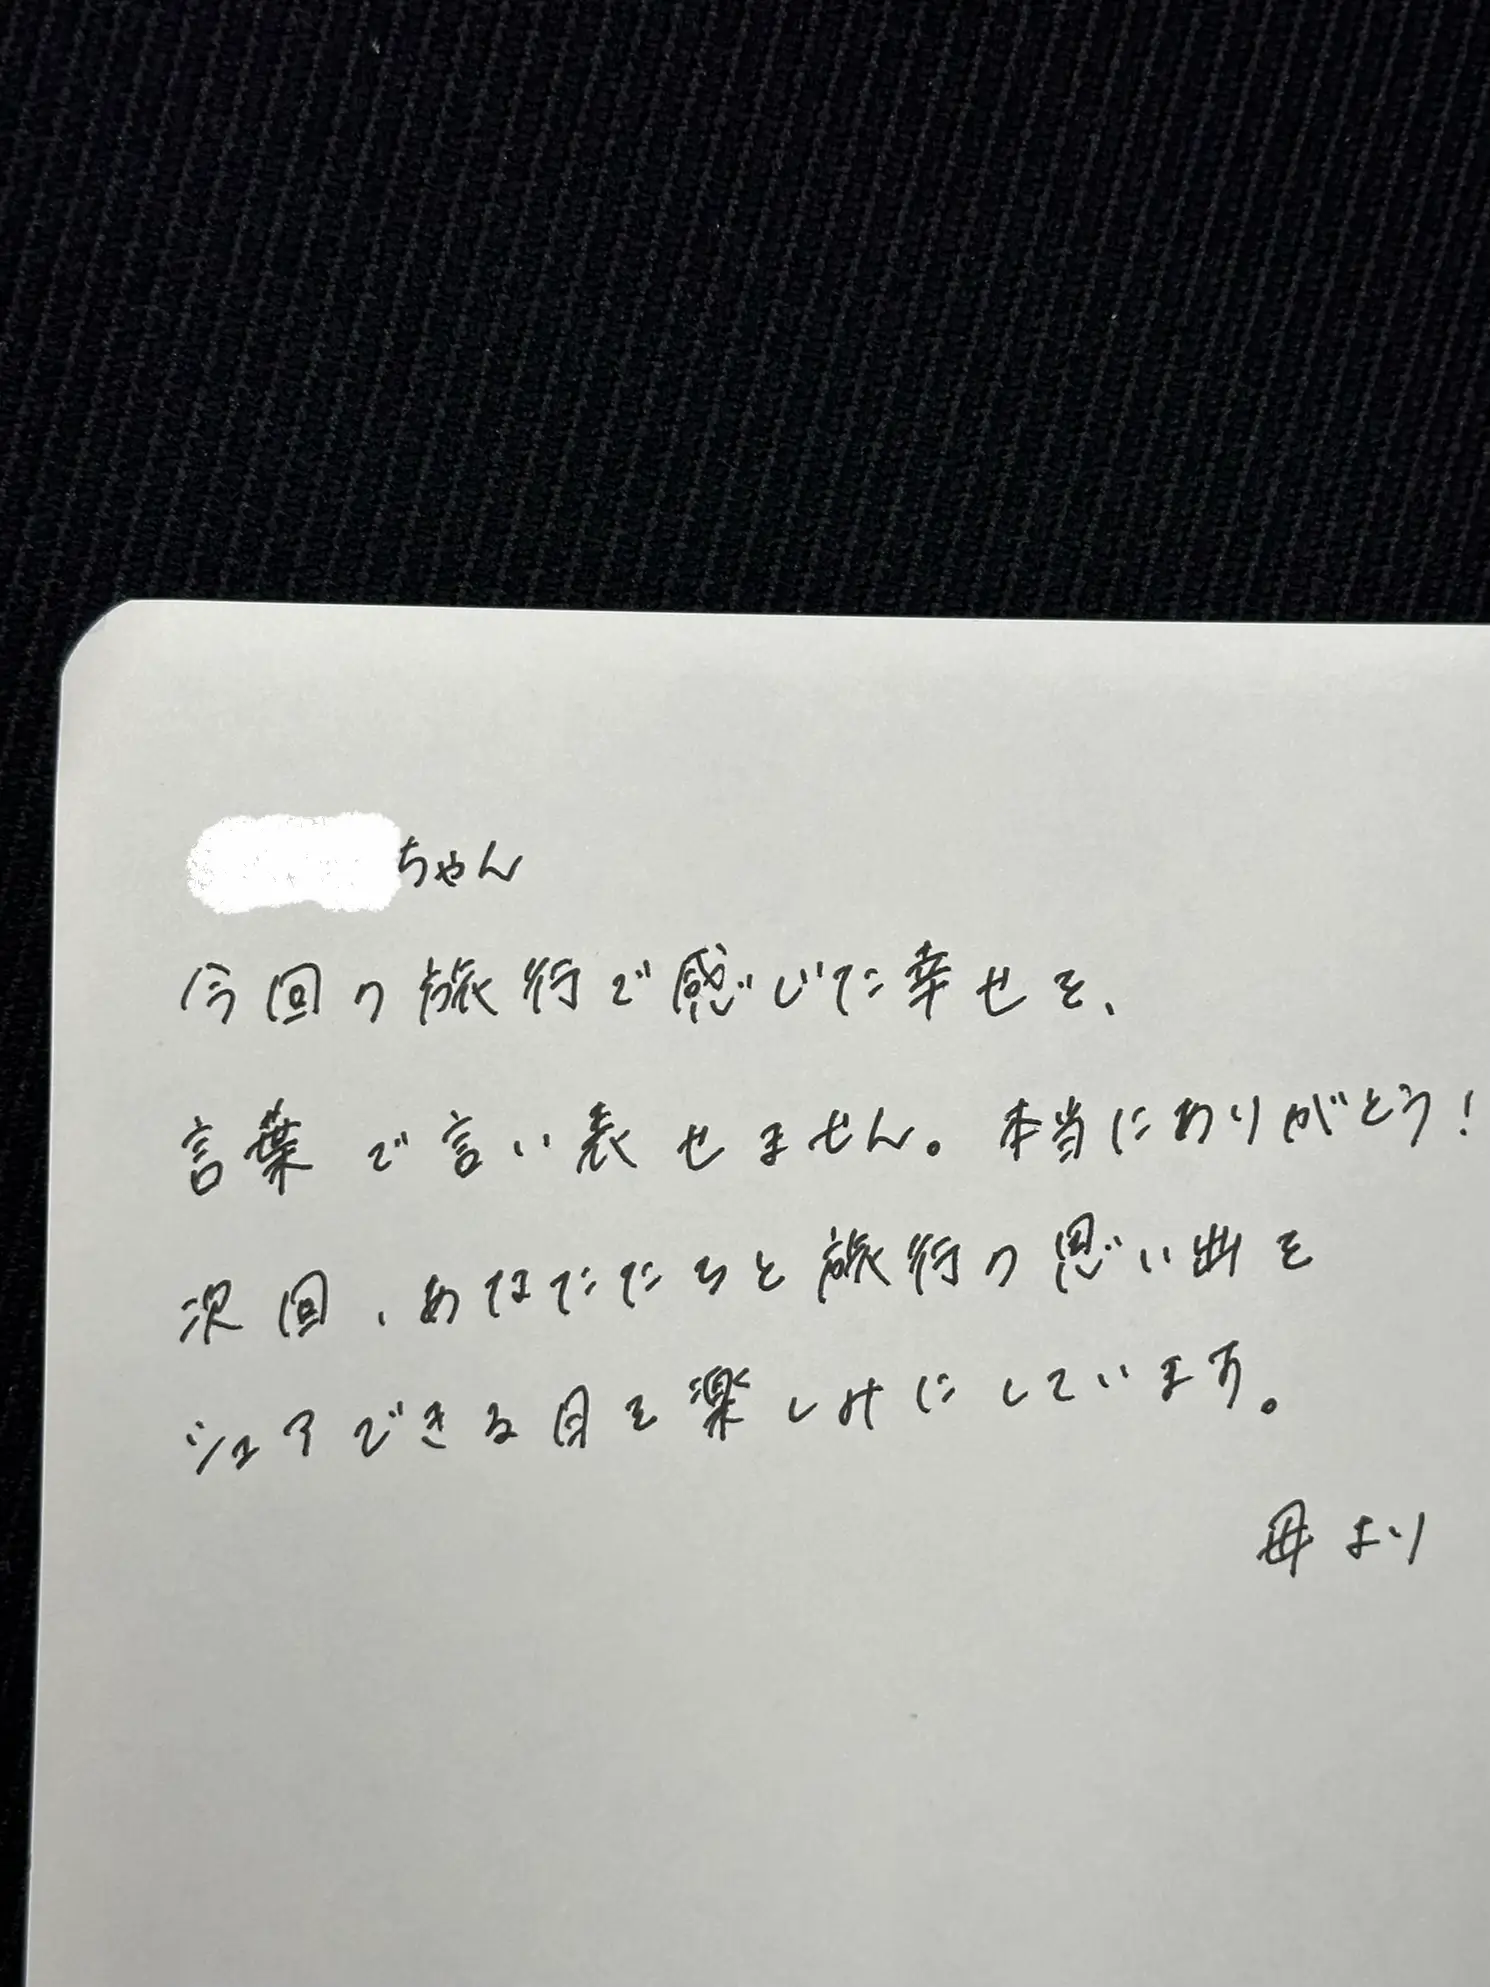 ちゃん
今回の旅行で感じた幸せを、
言葉で言い表せません。本当にありがとう!
次回、あなたたちと旅行の思い出を
シェアできる日を楽しみにしています。
母より